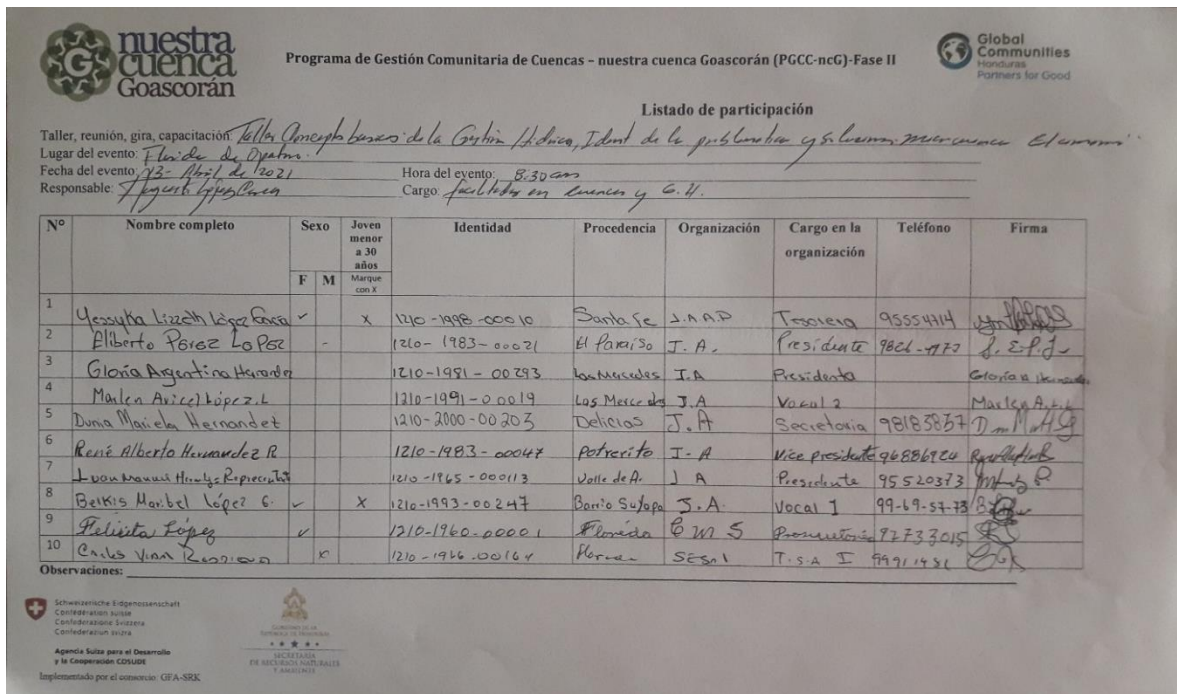 nuestra
cuenca
Goascorán
Programa de Gestión Comunitaria de Cuencas – nuestra cuenca Goascorán (PGCC-ncG)-Fase II
Global
Communities
Honduras
Partners for Good
Listado de participación
Taller, reunión, gira, capacitación: Taller Concepto basicos de la Gestión Hídrica, Ident de la problematica y
Lugar del evento: Florida de Opatoro
Fecha del evento: 13- Abril de 2021 Hora del evento: 8:30 am
Responsable: Cargo: facilitador en cuencas y G.H.
N° Nombre completo Sexo Joven menor a 30 años Identidad Procedencia Organización Cargo en la organización Teléfono Firma
F M Marque con X
1 Yessyka Lizzeth López ✓ X 1210-1998-00010 Santa fe J.A.A.P Tesorera
2 Eliberto Pérez LoPez - 1210-1983-00021 El Paraíso J.A. Presidente
3 Gloria Argentina Hernandez 1210-1981-00293 Las Mercedes J.A Presidenta Gloria A Hernandez
4 Marlen Avicel López.L 1210-1991-00019 Las Mercedes J.A Vocal 2 Marlen A.L.L
5 Dunia Mariela Hernandez 1210-2000-00203 Delicias J.A Secretaria 98183837
6 René Alberto Hernandez R 1210-1983-00047 Potrerito J-A Vice presidente 96886924
7 Juan Manuel 1210-1965-000113 Valle de A. J A Presidente 95520373
8 Belkis Maribel López G. ✓ X 1210-1993-00247 Barrio Suyapa J.A. Vocal I 99-69-57-73
9 Felicita López ✓ 1210-1960-00001 Florida 97733015
10 Carlos x 1210-1966-00164 SESAL T.S.A I
Observaciones:
Schweizerische Eidgenossenschaft
Confédération suisse
Confederazione Svizzera
Confederaziun svizra
Agencia Suiza para el Desarrollo
y la Cooperación COSUDE
GOBIERNO DE LA
REPÚBLICA DE HONDURAS
SECRETARÍA
DE RECURSOS NATURALES
Y AMBIENTE
Implementado por el consorcio GFA-SRK